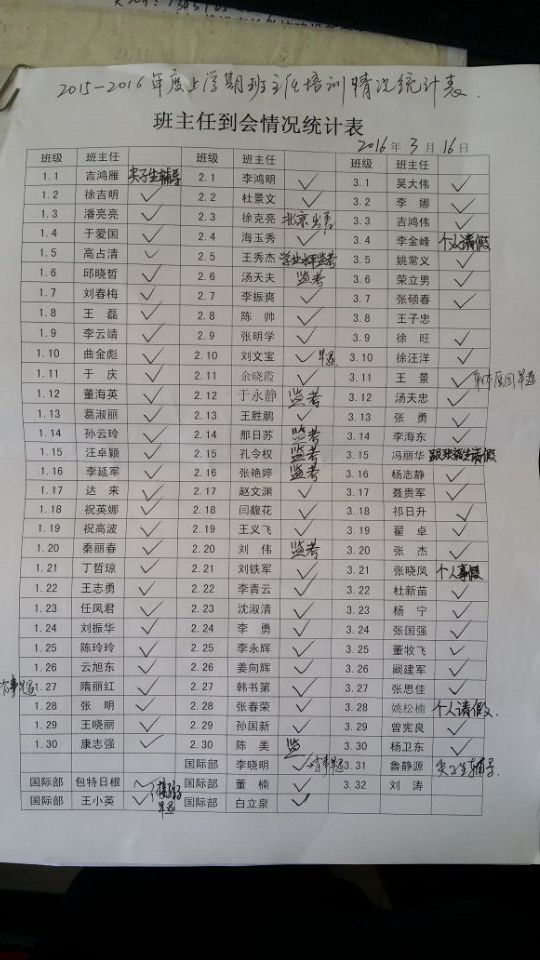 2015-2016年度上学期班主任培训情况统计表
班主任到会情况统计表
2016年3月16日
班级 班主任 班级 班主任 班级 班主任
1.1 吉鸿雁 实习生辅导 2.1 李鸿明 ✓ 3.1 吴大伟 ✓
1.2 徐吉明 ✓ 2.2 杜景文 ✓ 3.2 李娜 ✓
1.3 潘亮亮 ✓ 2.3 徐克亮 北京出差 3.3 吉鸿伟 ✓
1.4 于爱国 ✓ 2.4 海玉秀 ✓ 3.4 李金峰 个人请假
1.5 高占清 ✓ 2.5 王秀杰 学业水平监考 3.5 姚常义 ✓
1.6 邱晓哲 ✓ 2.6 汤天夫 监考 3.6 荣立男 ✓
1.7 刘春梅 ✓ 2.7 李振爽 ✓ 3.7 张硕春 ✓
1.8 王磊 ✓ 2.8 陈帅 ✓ 3.8 王子忠
1.9 李云靖 ✓ 2.9 张明学 ✓ 3.9 徐旺 ✓
1.10 曲金彪 ✓ 2.10 刘文宝 ✓ 早退 3.10 徐汪洋 ✓
1.11 于庆 ✓ 2.11 余晓霞 ✓ 3.11 王景 ✓
1.12 董海英 ✓ 2.12 于永静 监考 3.12 汤天忠 ✓
1.13 葛淑丽 ✓ 2.13 王胜鹏 ✓ 3.13 张勇 ✓
1.14 孙云玲 ✓ 2.14 那日苏 监考 3.14 李海东 ✓
1.15 汪卓颖 ✓ 2.15 孔令权 监考 3.15 冯丽华
1.16 李延军 ✓ 2.16 张艳婷 监考 3.16 杨志静 ✓
1.17 达来 ✓ 2.17 赵文渊 ✓ 3.17 聂贵军 ✓
1.18 祝英娜 ✓ 2.18 闫馥花 ✓ 3.18 祁日升 ✓
1.19 祝高波 ✓ 2.19 王义飞 ✓ 3.19 翟卓 ✓
1.20 秦丽春 ✓ 2.20 刘伟 监考 3.20 张杰 ✓
1.21 丁哲琼 ✓ 2.21 刘铁军 ✓ 3.21 张晓凤 个人事假
1.22 王志勇 ✓ 2.22 李青云 ✓ 3.22 杜新苗 ✓
1.23 任凤君 ✓ 2.23 沈淑清 ✓ 3.23 杨宁 ✓
1.24 刘振华 ✓ 2.24 李勇 ✓ 3.24 张国强 ✓
1.25 陈玲玲 ✓ 2.25 李永辉 ✓ 3.25 董牧飞 ✓
1.26 云旭东 ✓ 2.26 姜向辉 ✓ 3.26 阚建军 ✓
有事早退 1.27 隋丽红 ✓ 2.27 韩书第 ✓ 3.27 张思佳 ✓
1.28 张明 ✓ 2.28 张春荣 ✓ 3.28 姚松楠 个人请假
1.29 王晓丽 ✓ 2.29 孙国新 ✓ 3.29 曾宪良 ✓
1.30 康志强 ✓ 2.30 陈美 监 3.30 杨卫东 ✓
国际部 李晓明 ✓ 有事早退 3.31 鲁静源 实习生辅导
国际部 包特日根 国际部 董楠 ✓ 3.32 刘涛
国际部 王小英 ✓ 早退 国际部 白立泉 ✓